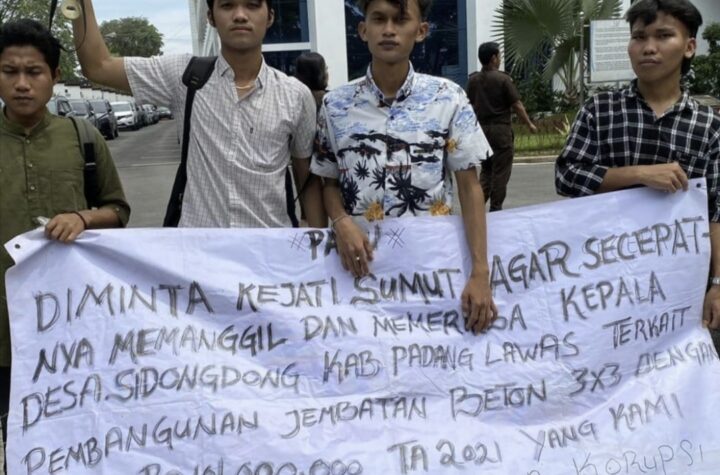 DIMINTA KEJATI SUMUT AGAR SECEPAT-
NYA MEMANGGIL DAN MEMERIKSA KEPALA
DESA. SIDONGDONG KAB PADANG LAWAS TERKAIT
PEMBANGUNAN JEMBATAN BETON 3X3 DENGAN
TA 2021 YANG KAMI
KORUPSI